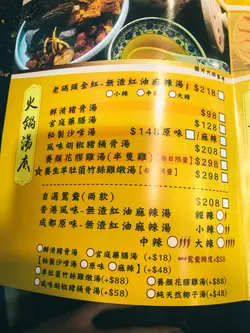 火鍋湯底
老碼頭金紅-無渣紅油麻辣湯 $218□
□小辣 □中辣 □大辣
鮮淆豬骨湯 $98□
官庭藥膳湯 $108□
秘製沙嗲湯 $148原味□/麻辣□
風味胡椒豬桶骨湯 $98□
養顏花膠雞湯(半隻雞)【每日限量】 $298□
★養生羊肚菌竹絲雞燉湯 $288□
自選鴛鴦(兩款) $88
香港風味-無渣紅油麻辣湯 輕辣
成都原味-無渣紅油麻辣湯 小辣
中辣 大辣
○鮮淆豬骨湯 ○官庭藥膳湯 (+$18)
【秘製沙嗲湯 ○原味 ○麻辣】(+$48)
○羊肚菌竹絲雞燉湯(+$88) ○養顏花膠雞湯(+$88)
○風味胡椒豬桶骨湯(+$8) ○純天然椰子湯(+$48)